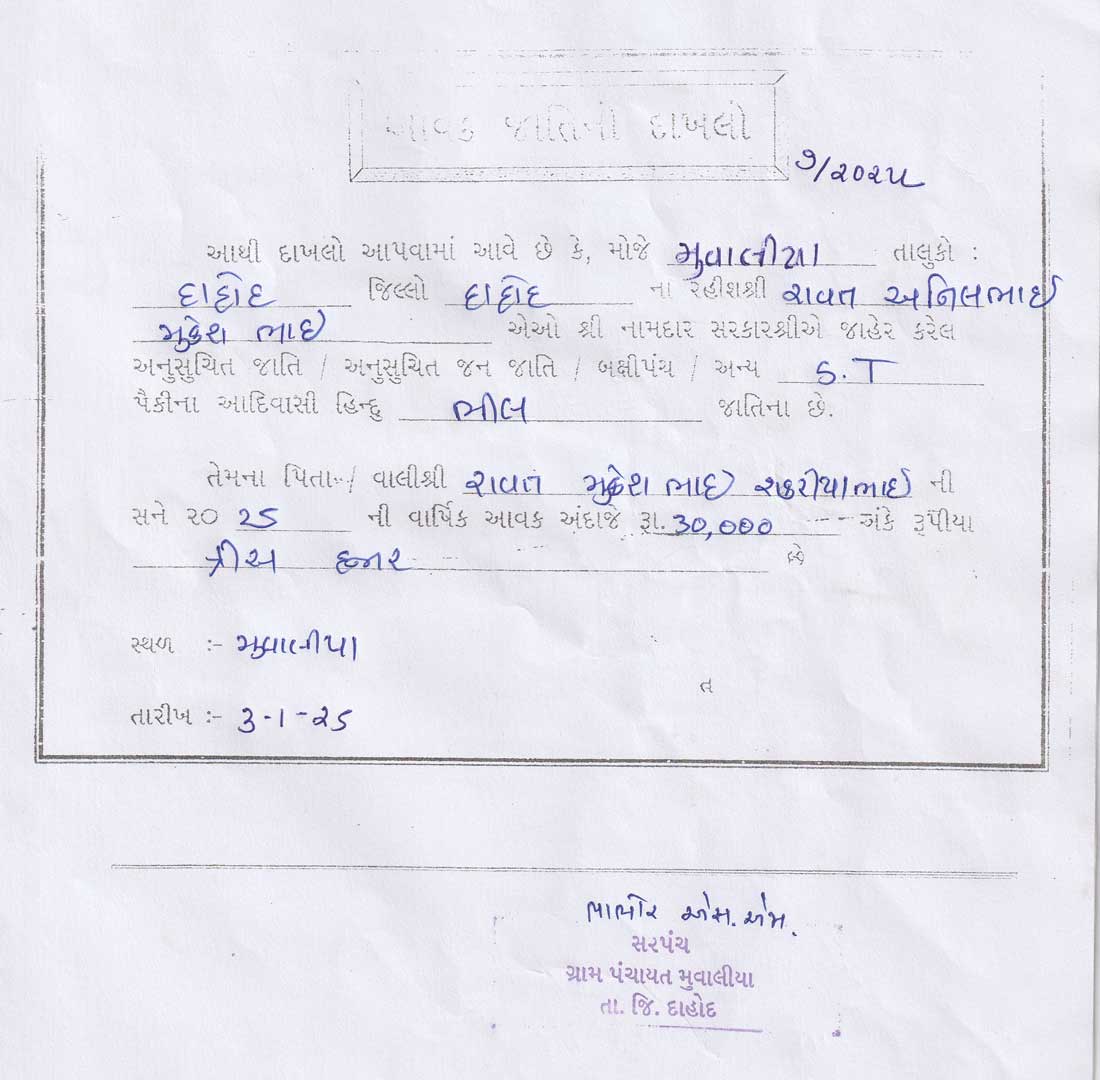 આવક જાતિનો દાખલો
૭/૨૦૨૫
આથી દાખલો આપવામાં આવે છે કે, મોજે મુવાલીયા તાલુકો :
દાહોદ જિલ્લો દાહોદ ના રહીશશ્રી રાવત અનિલભાઈ
મુકેશ ભાઈ એઓ શ્રી નામદાર સરકારશ્રીએ જાહેર કરેલ
અનુસુચિત જાતિ / અનુસુચિત જન જાતિ / બક્ષીપંચ / અન્ય S.T
પૈકીના આદિવાસી હિન્દુ ભીલ જાતિના છે.
તેમના પિતા / વાલીશ્રી રાવત મુકેશ ભાઈ શકરીયાભાઈ ની
સને ૨૦ 25 ની વાર્ષિક આવક અંદાજે રૂા. 30,000 અંકે રૂપીયા
ત્રીસ હજાર છે
સ્થળ :- મુવાલીયા
ત
તારીખ :- ૩-૧-૨૫
ભાભોર એસ. એમ.
સરપંચ
ગ્રામ પંચાયત મુવાલીયા
તા. જિ. દાહોદ